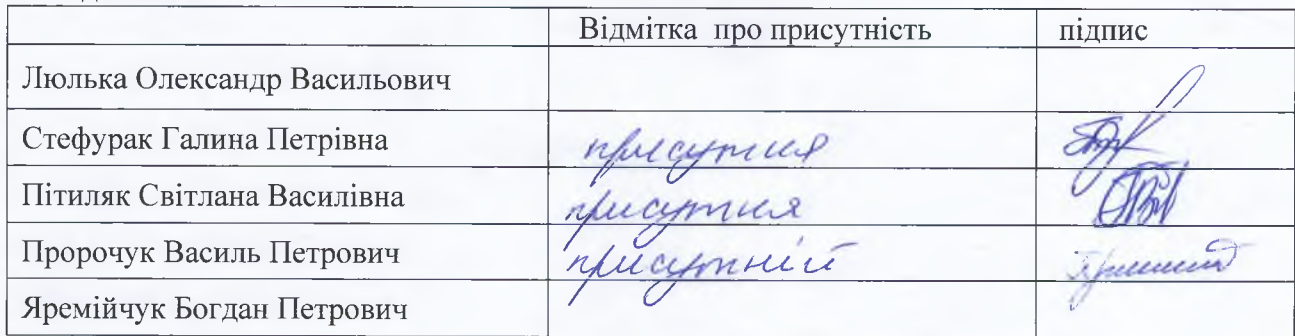 Відмітка про присутність підпис
Люлька Олександр Васильович
Стефурак Галина Петрівна присутня
Пітиляк Світлана Василівна присутня
Пророчук Василь Петрович присутній
Яремійчук Богдан Петрович